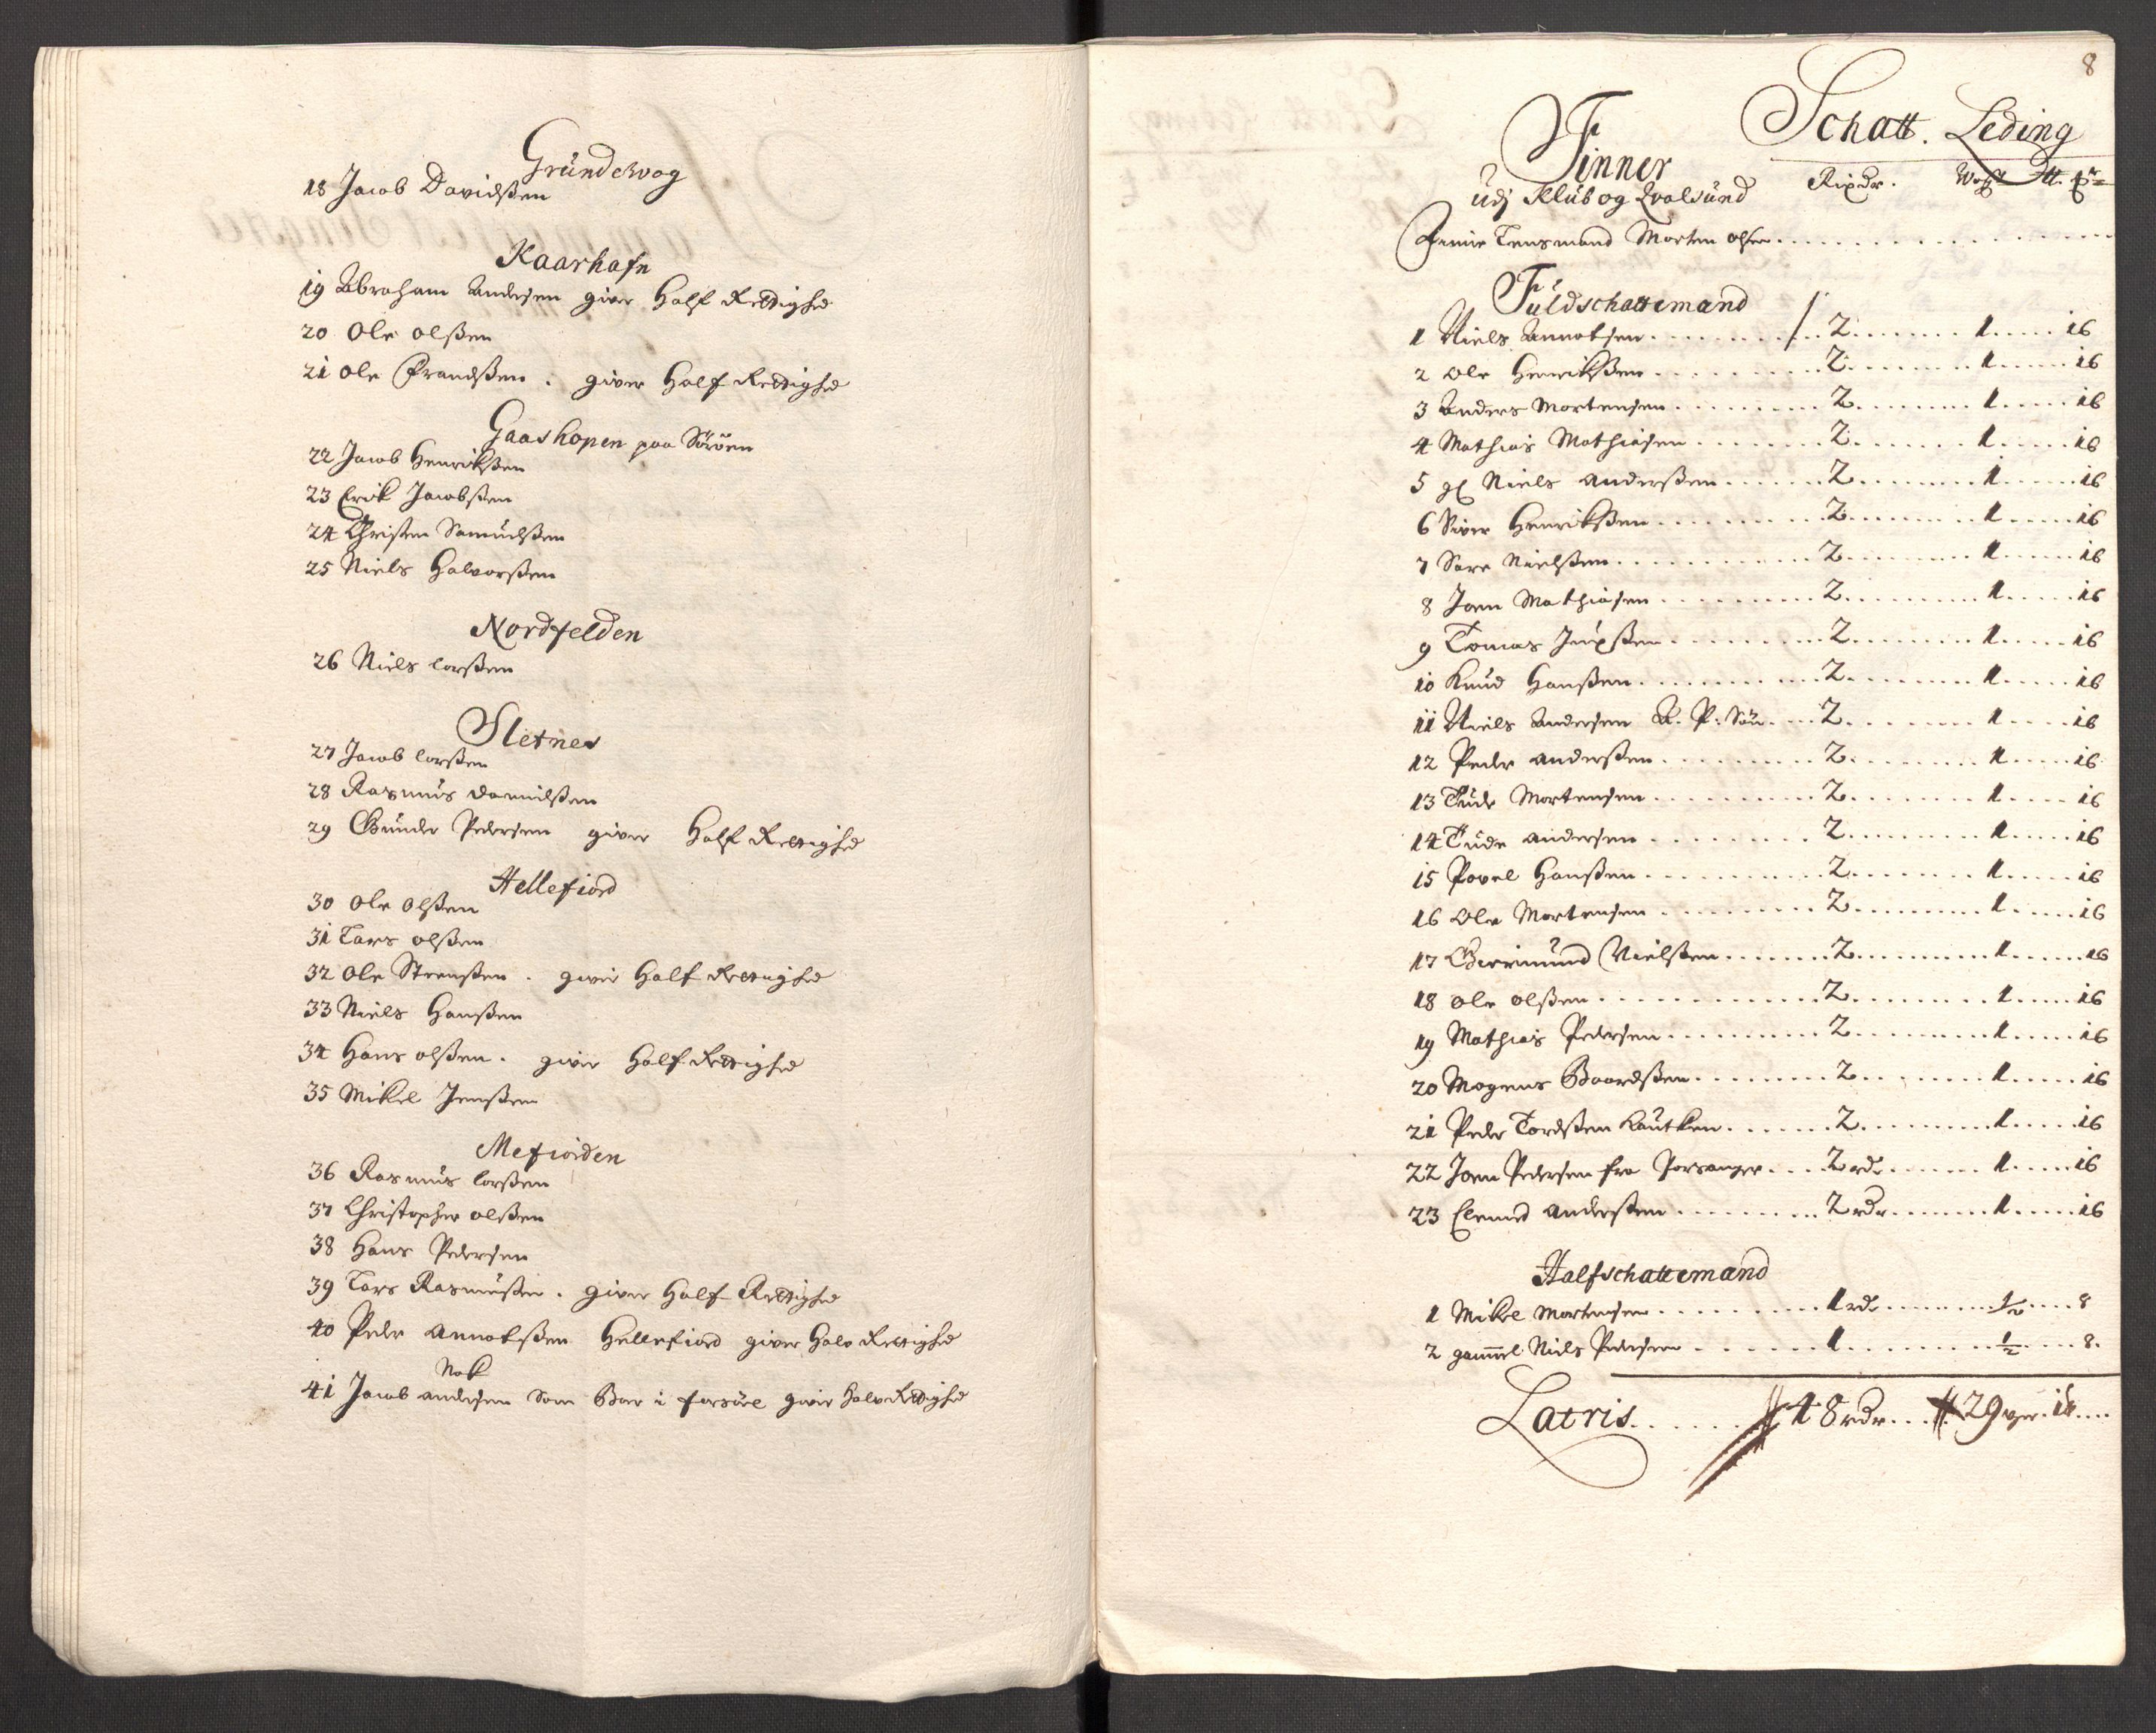 Gründevog
18 Jacob Davidsßen
Kaarhafn
19 Abraham Andersen giver Half Rettighed
20 Ole Olsßen
21 Ole Frandsßen . giver Half Rettighed
Gaashopen paa Söröen
22 Jacob Henrikßen
23 Erik Jacobsßen
24 Christen Samuelsßen
25 Niels Halvorsßen
Nordfelden
26 Niels Larsßen
Sletnes
27 Jacob Larsßen
28 Rasmus Danielsßen
29 Gunder Pedersen giver Half Rettighed
Hellefiord
30 Ole Olsßen
31 Lars olsßen
32 Ole Stensßen . giver Half Rettighed
33 Niels Hansßen
34 Hans olsßen . giver Half Rettighed
35 Mikel Jensßen
Mefiorden
36 Rasmus Larsßen
37 Christopher olsßen
38 Hans Pedersen
39 Lars Rasmusßen . giver Half Rettighed
40 Peder Annotsßen Hellefiord giver Halv Rettighed
Nok
41 Jacob andersen Som Boer i giver halv Rettighed
8
Schatt. Leding
Finner
Rixdr. Woger ℔.
Udj Klüb og Qvalsünd
Finne Lensmand Morten olsen
Füldschattemand
1 Niels Annotsen . . . 2 . . . 1 . . . 16
2 Ole Henrikßen . . . 2 . . . 1 . . . 16
3 Anders Mortensen . . . 2 . . . 1 . . . 16
4 Mathias Mathiasen . . . 2 . . . 1 . . . 16
5 gl Niels andersßen . . . 2 . . . 1 . . . 16
6 Siver Henrikßen . . . 2 . . . 1 . . . 16
7 Sare Nielsßen . . . 2 . . . 1 . . . 16
8 Joen Mathiasen . . . 2 . . . 1 . . . 16
9 Tomas . . . 2 . . . 1 . . . 16
10 Knud Hansßen . . . 2 . . . 1 . . . 16
11 Niels Andersen A. P. Sön . . . 2 . . . 1 . . . 16
12 Peder andersßen . . . 2 . . . 1 . . . 16
13 Tude Mortensen . . . 2 . . . 1 . . . 16
14 Tude andersen . . . 2 . . . 1 . . . 16
15 Povel Hansßen . . . 2 . . . 1 . . . 16
16 Ole Mortensen . . . 2 . . . 1 . . . 16
17 Germund Nielsßen . . . 2 . . . 1 . . . 16
18 ole olsßen . . . 2 . . . 1 . . . 16
19 Mathias Pedersen . . . 2 . . . 1 . . . 16
20 Mogens Baardsßen . . . 2 . . . 1 . . . 16
21 Peder Tordsßen . . . 2 . . . 1 . . . 16
22 Joen Pedersen fra Porsanger . . . 2 rdr . . . 1 . . . 16
23 Clemed andersßen . . . 2 rdr . . . 1 . . . 16
Halfschattemand
1 Mikel Mortensen . . . 1 rdr . . . ½ . . . 8
2 gammel Niels Pedersen . . . 1 . . . ½ . . . 8.
Latris . . . 48 rdr . . . 29